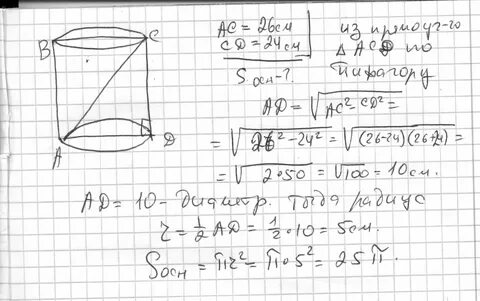 B C
A D
AC = 26см
CD = 24см
Sосн-?
из прямоуг-го
△ ACD по
Пифагору
AD = √AC² - CD² =
= √26² - 24² = √(26-24)(26+24) =
= √2·50 = √100 = 10см.
AD = 10 - диаметр. тогда радиус
r = 1/2 AD = 1/2 · 10 = 5см.
Sосн = πr² = π·5² = 25π.